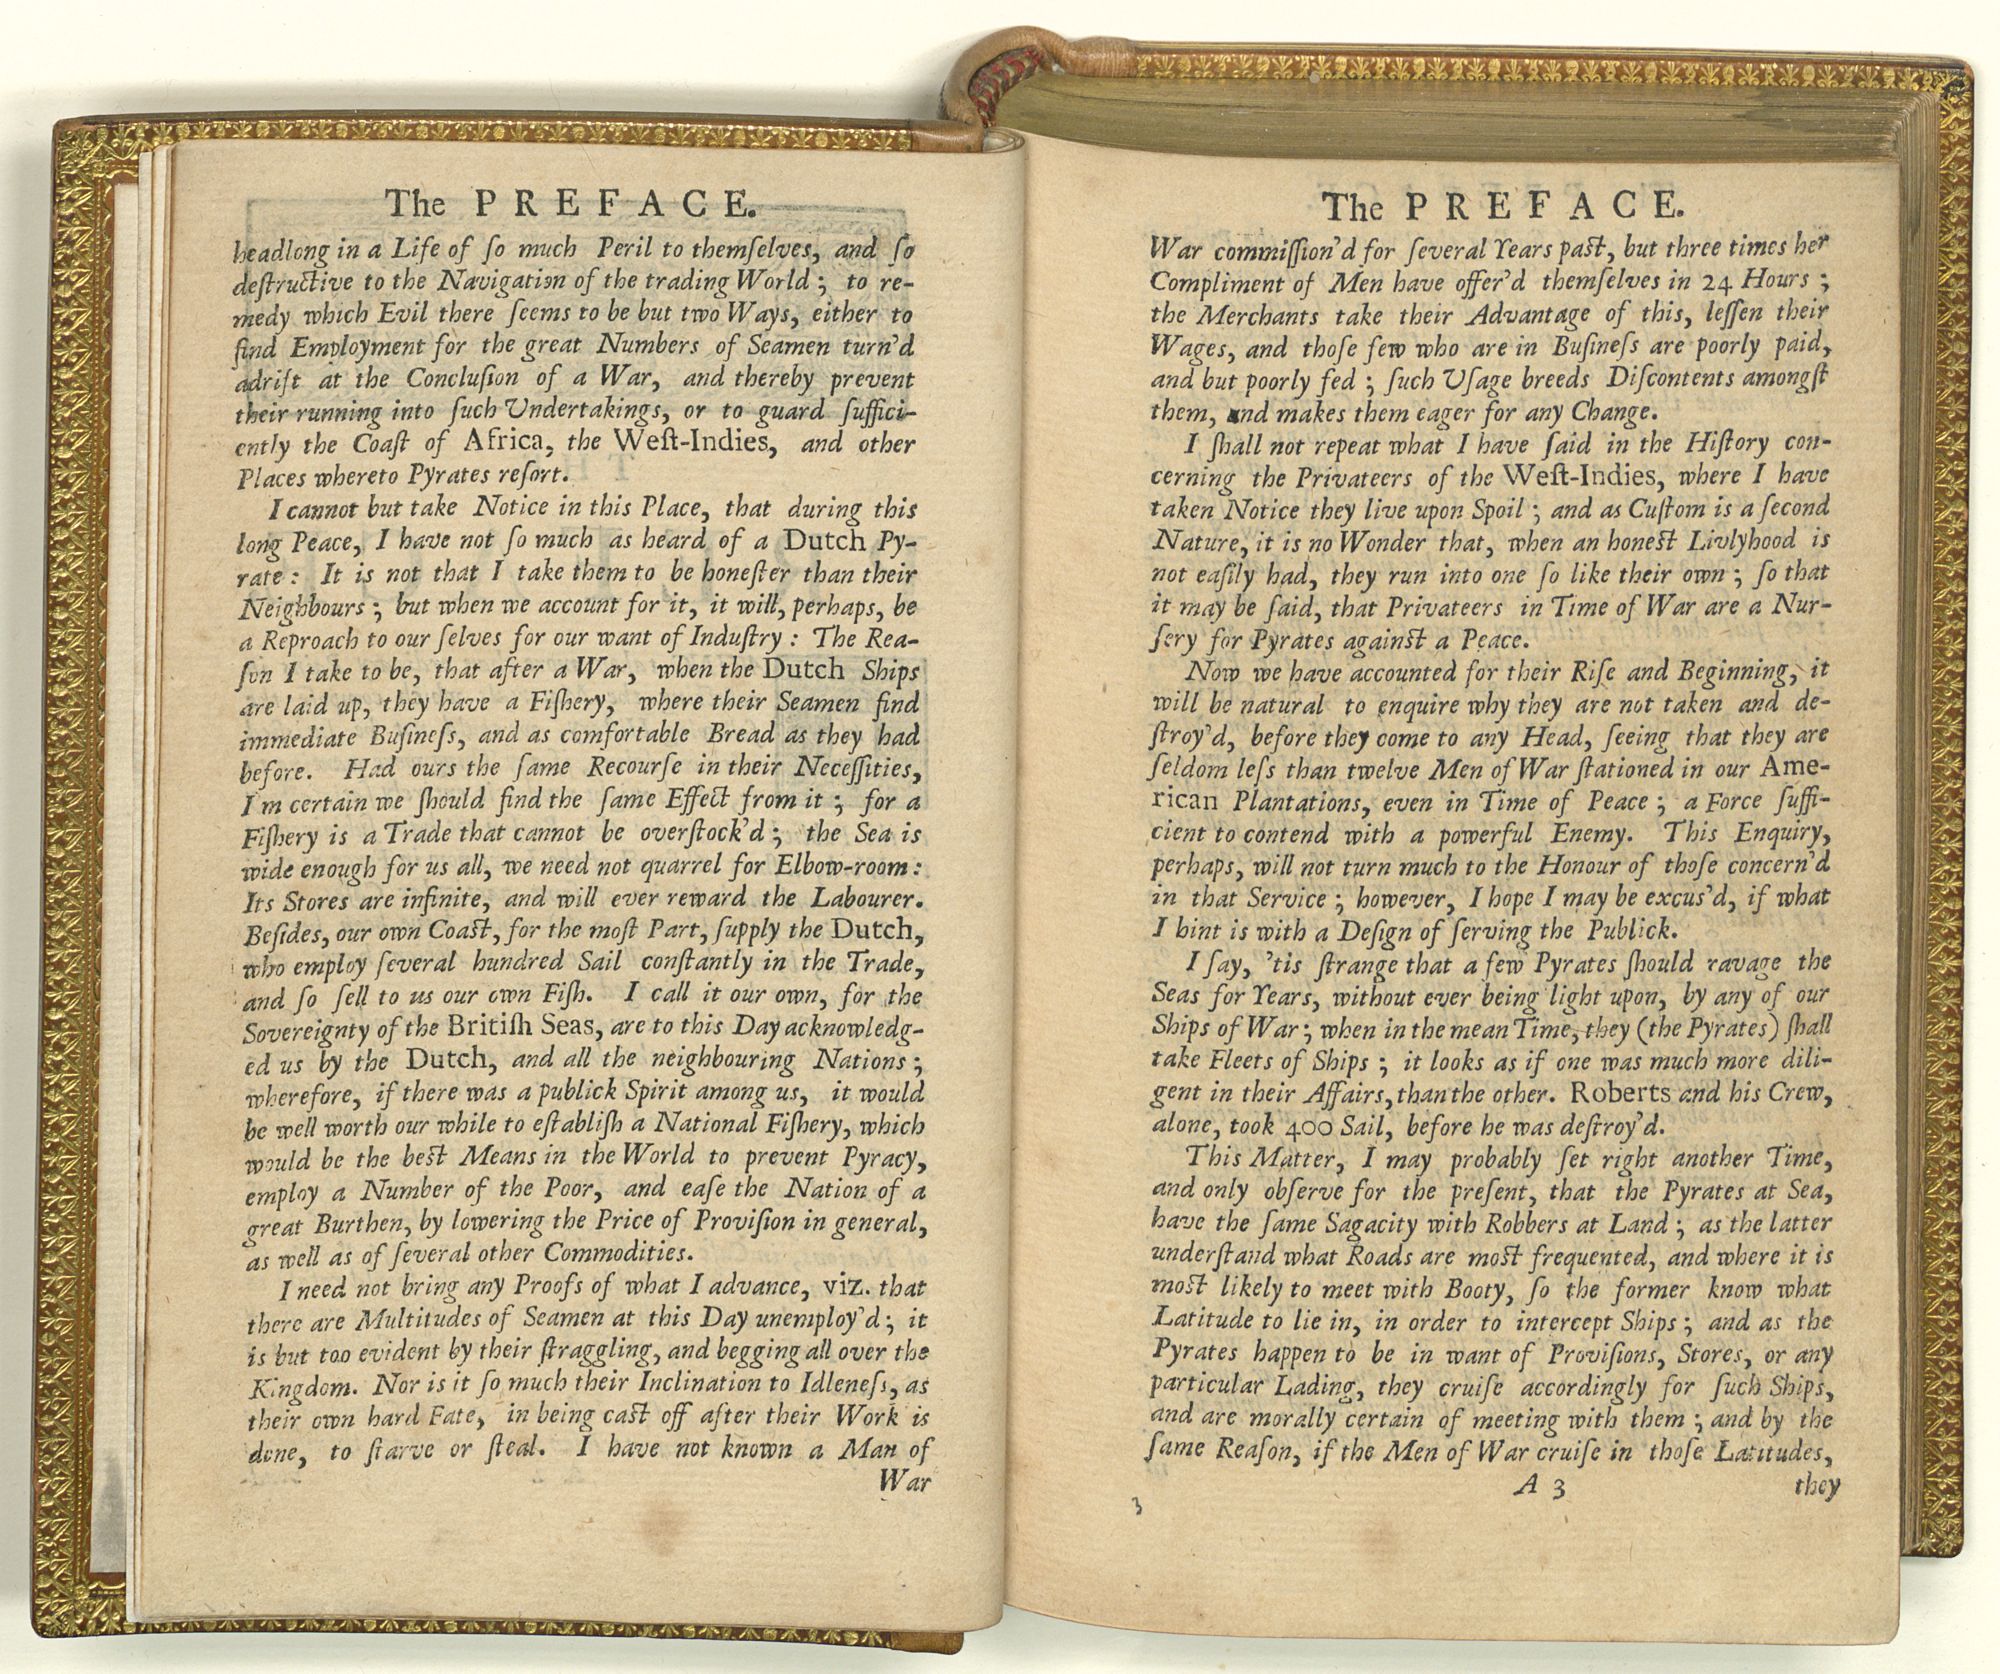 The PREFACE.
headlong in a Life of ſo much Peril to themſelves, and ſo
deſtructive to the Navigation of the trading World; to re-
medy which Evil there ſeems to be but two Ways, either to
find Employment for the great Numbers of Seamen turn'd
adrift at the Concluſion of a War, and thereby prevent
their running into ſuch Undertakings, or to guard ſuffici-
ently the Coaſt of Africa, the Weſt-Indies, and other
Places whereto Pyrates reſort.
I cannot but take Notice in this Place, that during this
long Peace, I have not ſo much as heard of a Dutch Py-
rate: It is not that I take them to be honeſter than their
Neighbours; but when we account for it, it will, perhaps, be
a Reproach to our ſelves for our want of Induſtry: The Rea-
ſon I take to be, that after a War, when the Dutch Ships
are laid up, they have a Fiſhery, where their Seamen find
immediate Buſineſs, and as comfortable Bread as they had
before. Had ours the ſame Recourſe in their Neceſſities,
I'm certain we ſhould find the ſame Effect from it; for a
Fiſhery is a Trade that cannot be overſtock'd; the Sea is
wide enough for us all, we need not quarrel for Elbow-room:
Its Stores are infinite, and will ever reward the Labourer.
Beſides, our own Coaſt, for the moſt Part, ſupply the Dutch,
who employ ſeveral hundred Sail conſtantly in the Trade,
and ſo ſell to us our own Fiſh. I call it our own, for the
Sovereignty of the Britiſh Seas, are to this Day acknowledg-
ed us by the Dutch, and all the neighbouring Nations;
wherefore, if there was a publick Spirit among us, it would
be well worth our while to eſtabliſh a National Fiſhery, which
would be the beſt Means in the World to prevent Pyracy,
employ a Number of the Poor, and eaſe the Nation of a
great Burthen, by lowering the Price of Proviſion in general,
as well as of ſeveral other Commodities.
I need not bring any Proofs of what I advance, viz. that
there are Multitudes of Seamen at this Day unemploy'd; it
is but too evident by their ſtraggling, and begging all over the
Kingdom. Nor is it ſo much their Inclination to Idleneſs, as
their own hard Fate, in being caſt off after their Work is
done, to ſtarve or ſteal. I have not known a Man of
War
The PREFACE.
War commiſſion'd for ſeveral Years paſt, but three times her
Compliment of Men have offer'd themſelves in 24 Hours;
the Merchants take their Advantage of this, leſſen their
Wages, and thoſe few who are in Buſineſs are poorly paid,
and but poorly fed; ſuch Uſage breeds Diſcontents amongſt
them, and makes them eager for any Change.
I ſhall not repeat what I have ſaid in the Hiſtory con-
cerning the Privateers of the Weſt-Indies, where I have
taken Notice they live upon Spoil; and as Cuſtom is a ſecond
Nature, it is no Wonder that, when an honeſt Livlyhood is
not eaſily had, they run into one ſo like their own; ſo that
it may be ſaid, that Privateers in Time of War are a Nur-
ſery for Pyrates againſt a Peace.
Now we have accounted for their Riſe and Beginning, it
will be natural to enquire why they are not taken and de-
ſtroy'd, before they come to any Head, ſeeing that they are
ſeldom leſs than twelve Men of War ſtationed in our Ame-
rican Plantations, even in Time of Peace; a Force ſuffi-
cient to contend with a powerful Enemy. This Enquiry,
perhaps, will not turn much to the Honour of thoſe concern'd
in that Service; however, I hope I may be excus'd, if what
I hint is with a Deſign of ſerving the Publick.
I ſay, 'tis ſtrange that a few Pyrates ſhould ravage the
Seas for Years, without ever being light upon, by any of our
Ships of War; when in the mean Time, they (the Pyrates) ſhall
take Fleets of Ships; it looks as if one was much more dili-
gent in their Affairs, than the other. Roberts and his Crew,
alone, took 400 Sail, before he was deſtroy'd.
This Matter, I may probably ſet right another Time,
and only obſerve for the preſent, that the Pyrates at Sea,
have the ſame Sagacity with Robbers at Land; as the latter
underſtand what Roads are moſt frequented, and where it is
moſt likely to meet with Booty, ſo the former know what
Latitude to lie in, in order to intercept Ships; and as the
Pyrates happen to be in want of Proviſions, Stores, or any
particular Lading, they cruiſe accordingly for ſuch Ships,
and are morally certain of meeting with them; and by the
ſame Reaſon, if the Men of War cruiſe in thoſe Latitudes,
A 3 they
3